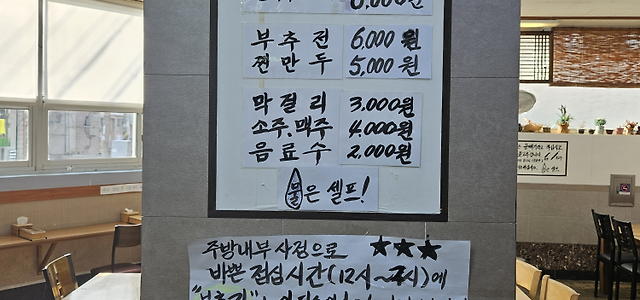 부추전 6,000원
찐만두 5,000원
막걸리 3,000원
소주.맥주 4,000원
음료수 2,000원
물은 셀프!
주방내부사정으로 ★★★
바쁜 점심시간(12시~2시)에